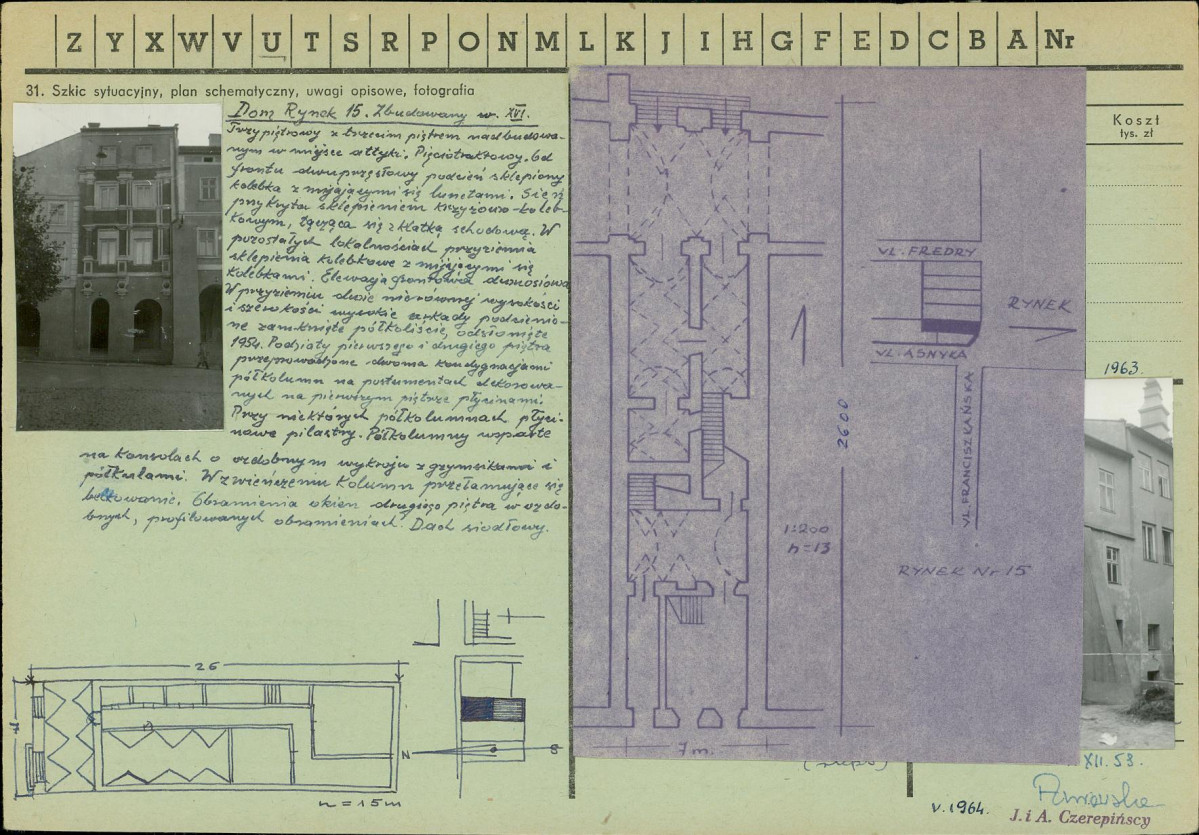 Z Y X W V U T S R P O N M L K J I H G F E D C B A Nr
31. Szkic sytuacyjny, plan schematyczny, uwagi opisowe, fotografia
Dom Rynek 15. Zbudowany w. XVI.
Trzypiętrowy z trzecim piętrem nadbudowa-
nym w miejsce attyki. Pięciotraktowy. Od
frontu dwuprzęsłowy podcień sklepiony
kolebką z mijającymi się lunetami. Sień
przykryta sklepieniem krzyżowo-koleb-
kowym, łącząca się z klatką schodową. W
pozostałych lokalnościach przyziemia
sklepienia kolebkowe z mijającymi się
kolebkami. Elewacja frontowa dwuosiowa
W przyziemiu dwie nierównej wysokości
i szerokości wysokie arkady podcienio-
ne zamknięte półkoliście, odsłonięte
1954. Podziały pierwszego i drugiego piętra
przeprowadzone dwoma kondygnacjami
półkolumn na postumentach dekorowa-
nych na pierwszym piętrze płycinami.
Przy niektórych półkolumnach płyci-
nowe pilastry. Półkolumny wsparte
na konsolach o ozdobnym wykroju z gzymsikami i
półkulami. W zwieńczeniu kolumn przełamujące się
belkowanie. Obramienia okien drugiego piętra w ozdo-
bnych, profilowanych obramieniach. Dach siodłowy.
26
N
S
n = 15 m
UL. FREDRY
RYNEK
UL. ASNYKA
UL. FRANCISZKAŃSKA
2600
1:200
n=13
RYNEK Nr 15
7 m.
Koszt
tys. zł
1963.
XII. 53.
V. 1964.
J. i A. Czerepińscy